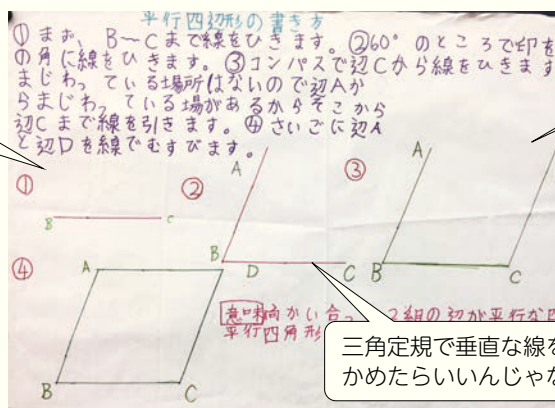 平行四辺形の書き方
①まず、B〜Cまで線をひきます。②60°のところで印を
の角に線をひきます。③コンパスで辺Cから線をひきます
まじわっている場所はないので辺Aか
らまじわっている場があるからそこから
辺Cまで線を引きます。④さいごに辺A
と辺Dを線でむすびます。
① ② ③
B C
A
B D C
A
B C
④
A
B C
意味 向かい合っ 2組の辺が平行な四
平行四角形
三角定規で垂直な線を
かめたらいいんじゃな